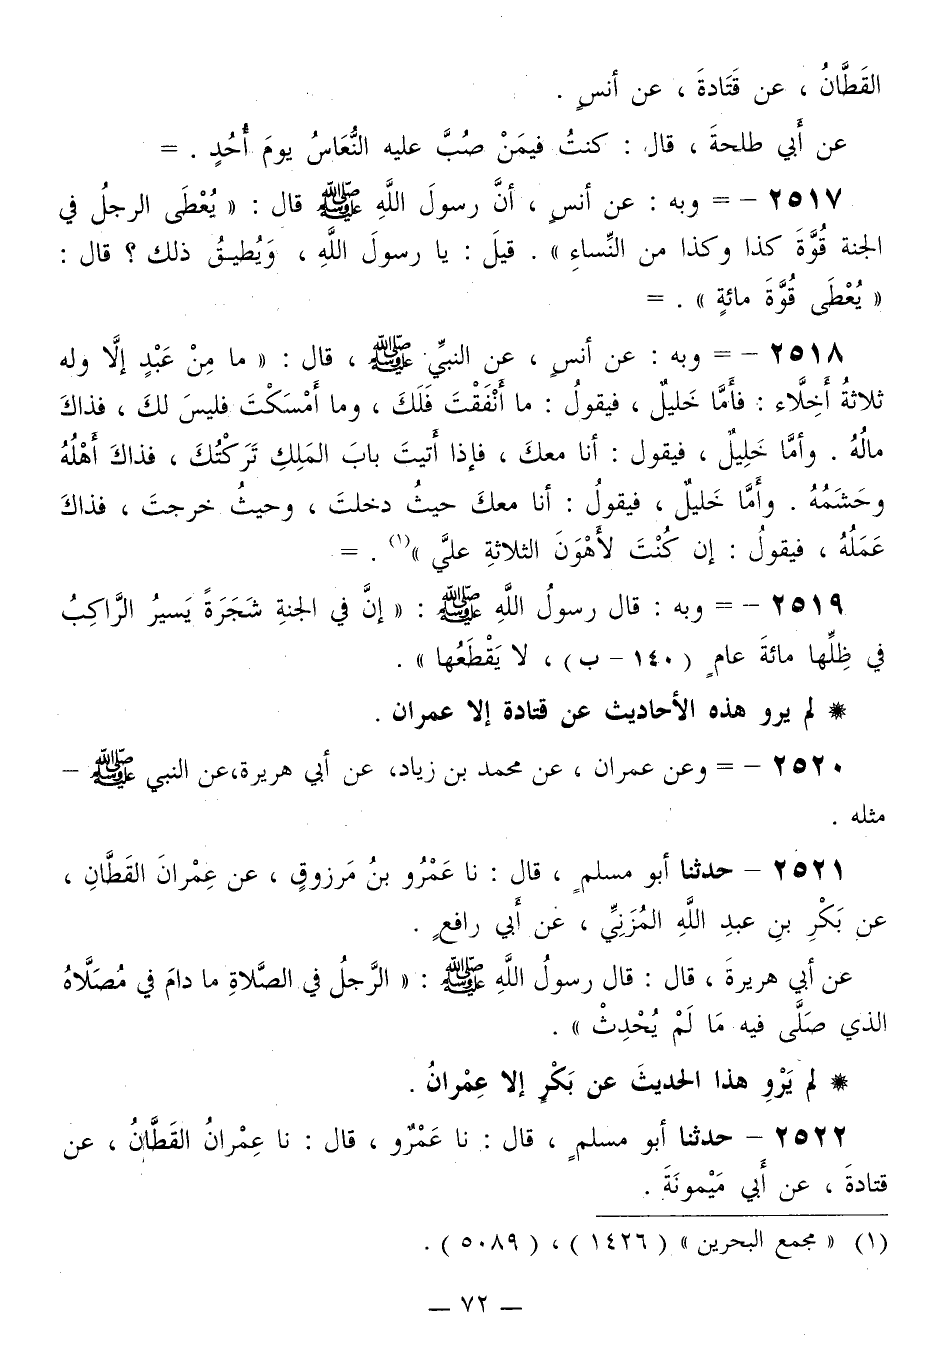 القَطَّانُ ، عن قَتَادةَ ، عن أنسٍ .
عن أَبي طلحةَ ، قال : كنتُ فيمَنْ صُبَّ عليه النُّعَاسُ يومَ أُحُدٍ . =
٢٥١٧ - = وبه : عن أنسٍ ، أنَّ رسولَ اللَّهِ ﷺ قال : « يُعْطَى الرجلُ في
الجنة قُوَّةَ كذا وكذا من النِّساءِ » . قيلَ : يا رسولَ اللَّهِ ، وَيُطيقُ ذلك ؟ قال :
« يُعْطَى قُوَّةَ مائةٍ » . =
٢٥١٨ - = وبه : عن أنسٍ ، عن النبيِّ ﷺ ، قال : « ما مِنْ عَبْدٍ إلَّا وله
ثلاثةُ أَخِلَّاء : فأَمَّا خَليلٌ ، فيقولُ : ما أَنْفَقْتَ فَلَكَ ، وما أَمْسَكْتَ فليسَ لكَ ، فذاكَ
مالُهُ . وأمَّا خَلِيلٌ ، فيقول : أنا معكَ ، فإذا أَتيتَ بابَ المَلِكِ تَرَكْتُكَ ، فذاكَ أَهْلُهُ
وحَشَمُهُ . وأَمَّا خَليلٌ ، فيقولُ : أنا معكَ حيثُ دخلتَ ، وحيثُ خرجتَ ، فذاكَ
عَمَلُهُ ، فيقولُ : إن كُنْتَ لأَهْوَنَ الثلاثةِ عليَّ »(١) . =
٢٥١٩ - = وبه : قال رسولُ اللَّهِ ﷺ : « إنَّ في الجنةِ شَجَرَةً يَسيرُ الرَّاكِبُ
في ظِلِّها مائةَ عامٍ ( ١٤٠ - ب ) ، لا يَقْطَعُها » .
* لم يرو هذه الأحاديث عن قتادة إلا عمران .
٢٥٢٠ - = وعن عمران ، عن محمد بن زياد، عن أبي هريرة،عن النبي ﷺ -
مثله .
٢٥٢١ - حدثنا أبو مسلمٍ ، قال : نا عَمْرُو بنُ مَرزوقٍ ، عن عِمْرانَ القَطَّانِ ،
عن بَكْرِ بنِ عبدِ اللَّهِ المُزَنِيِّ ، عن أَبي رافعٍ .
عن أبي هريرةَ ، قال : قال رسولُ اللَّهِ ﷺ : « الرَّجلُ في الصَّلاةِ ما دامَ في مُصَلَّاهُ
الذي صَلَّى فيه مَا لَمْ يُحْدِثْ » .
* لم يَرْوِ هذا الحديثَ عن بَكْرٍ إلا عِمْرانُ .
٢٥٢٢ - حدثنا أبو مسلمٍ ، قال : نا عَمْرٌو ، قال : نا عِمْرانُ القَطَّانُ ، عن
قتادةَ ، عن أَبي مَيْمونَةَ .
(١) « مجمع البحرين » ( ١٤٢٦ ) ، ( ٥٠٨٩ ) .
— ٧٢ —